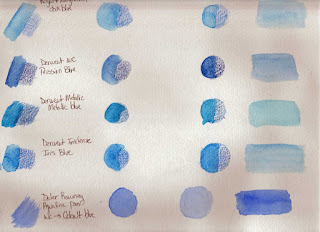 Derwent WC
Prussian Blue
Derwent Metallic
Metallic blue
Derwent Inktense
Iris Blue
Daler Rowney
Aquafine pan
WC → Cobalt blue